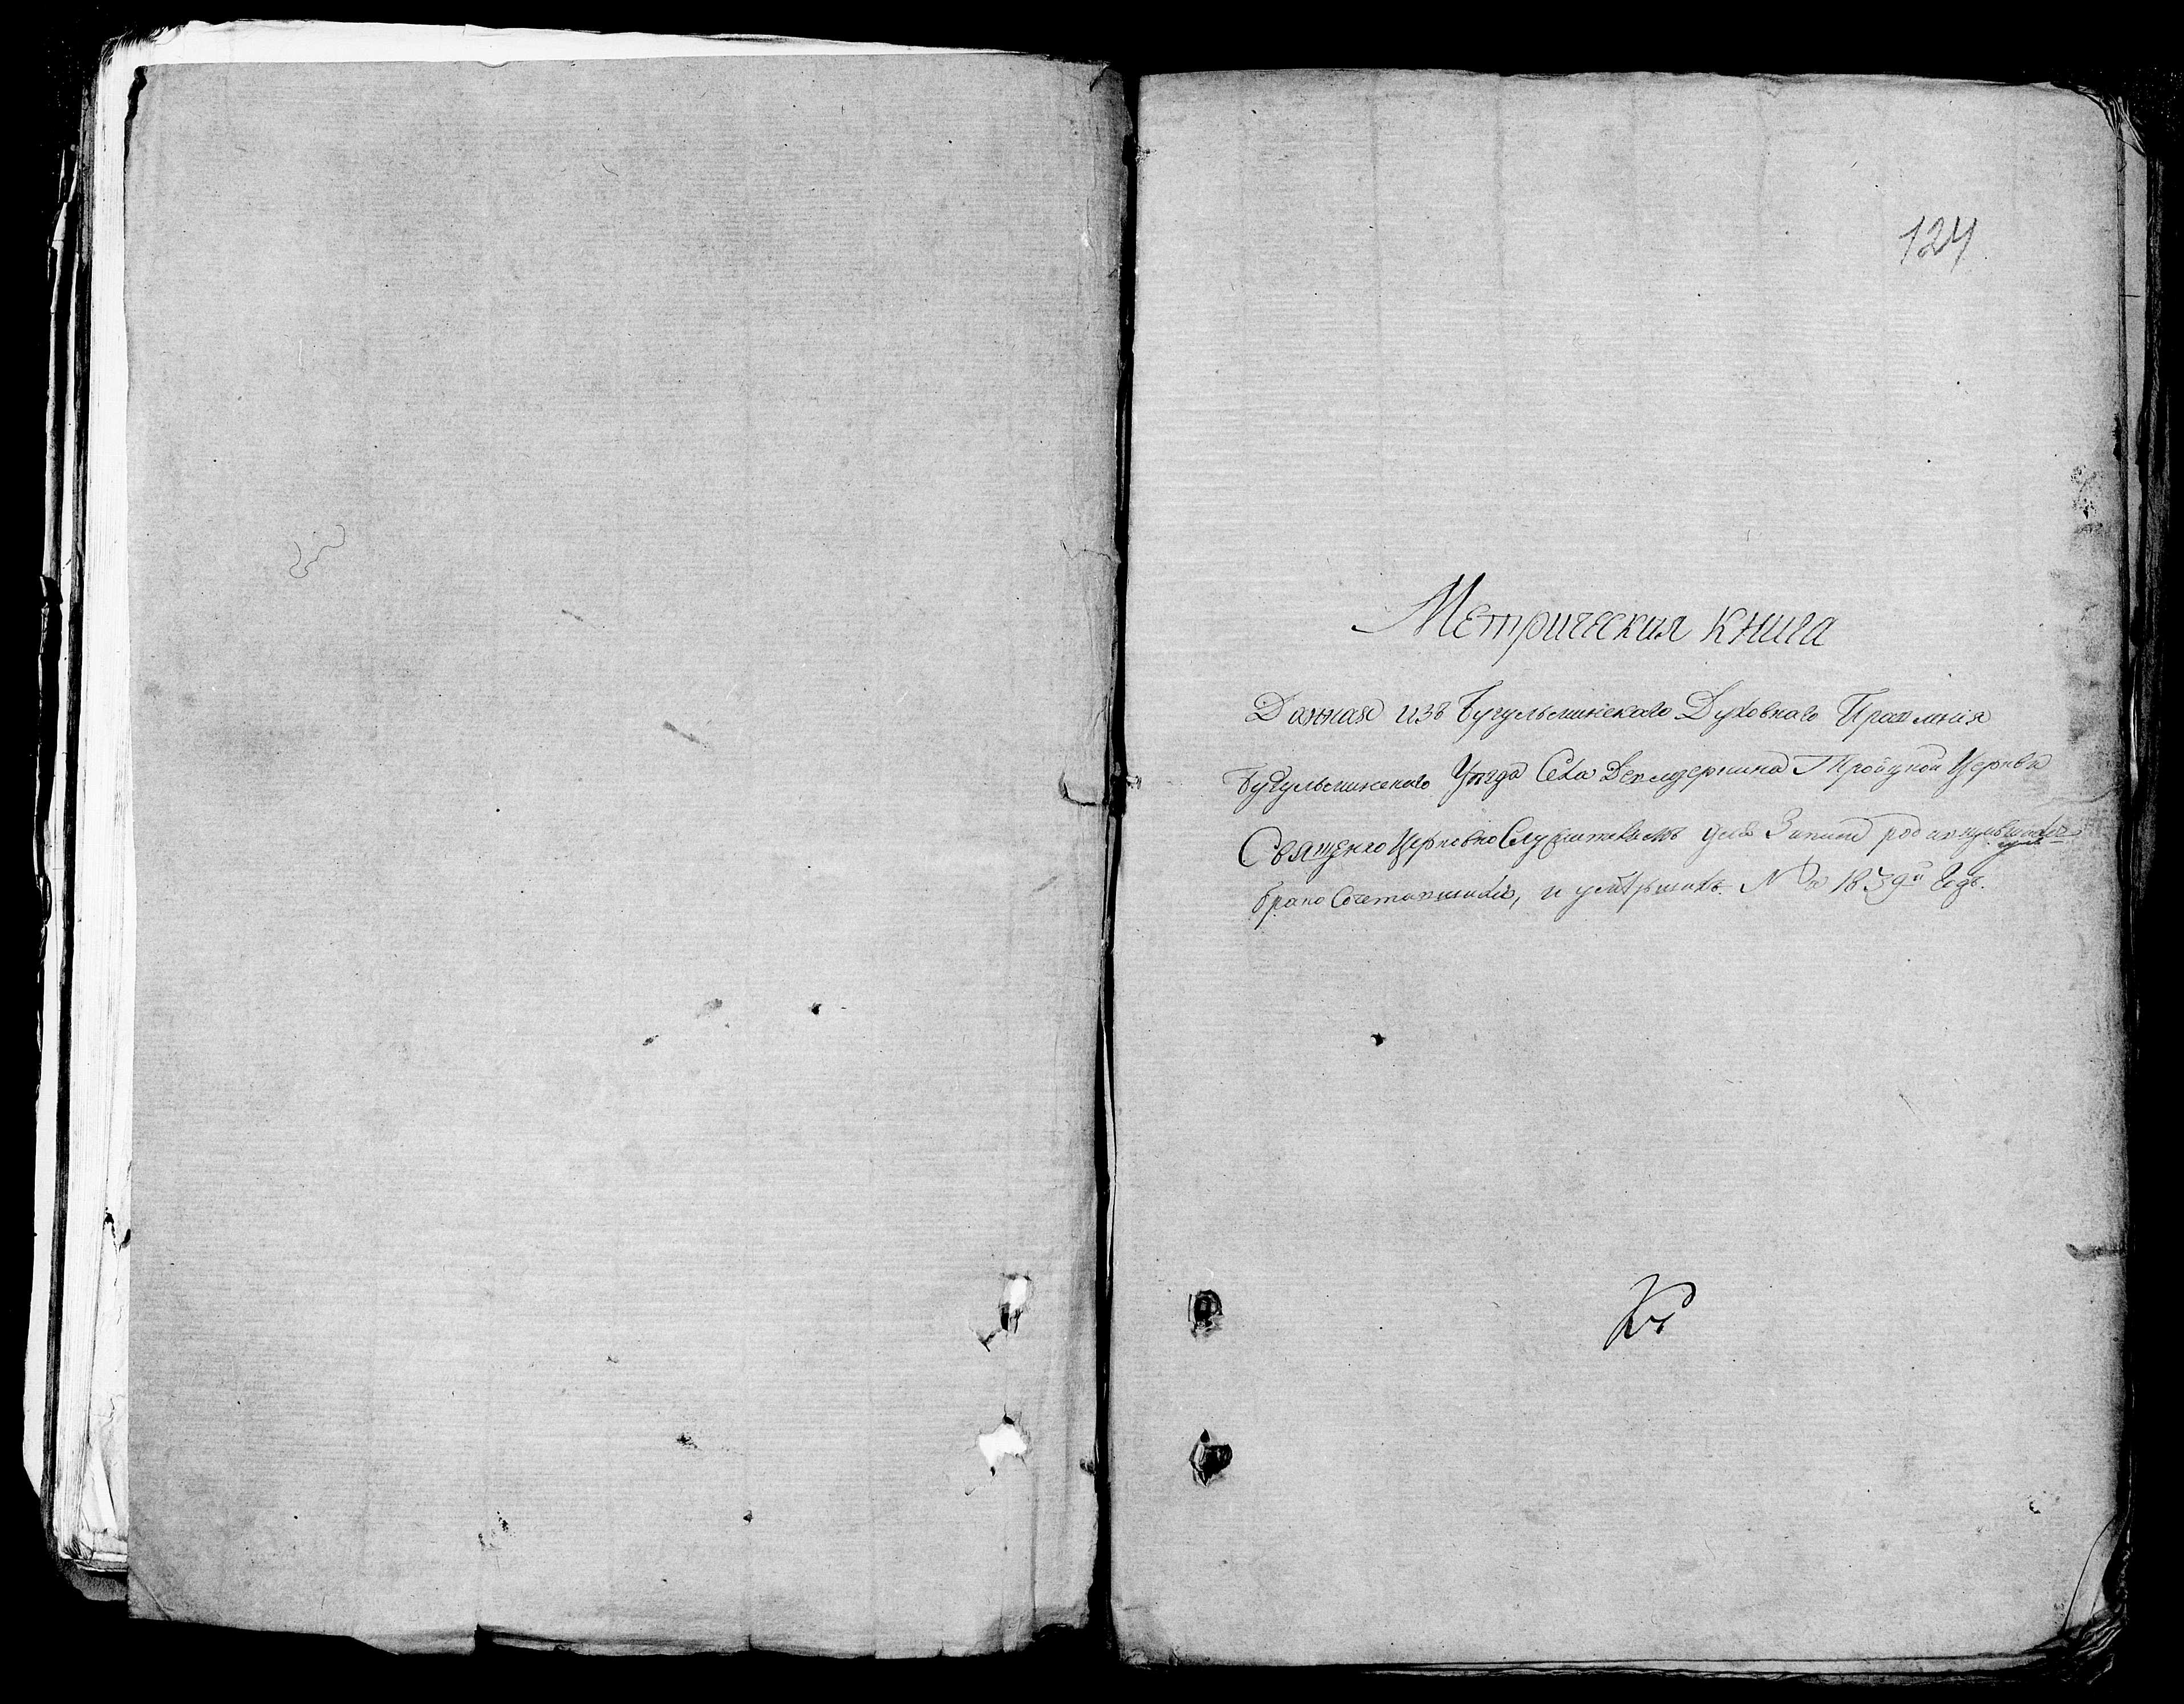 124
Метрическая книга
Данная изъ Бугульминскаго Духовнаго Правленія
Бугульминскаго Уѣзда Села Троицкой Церкви
Священно Церковно Служителямъ для Записи родившихся
брако Сочетавшихся, и умершихъ На 1839й Годъ.